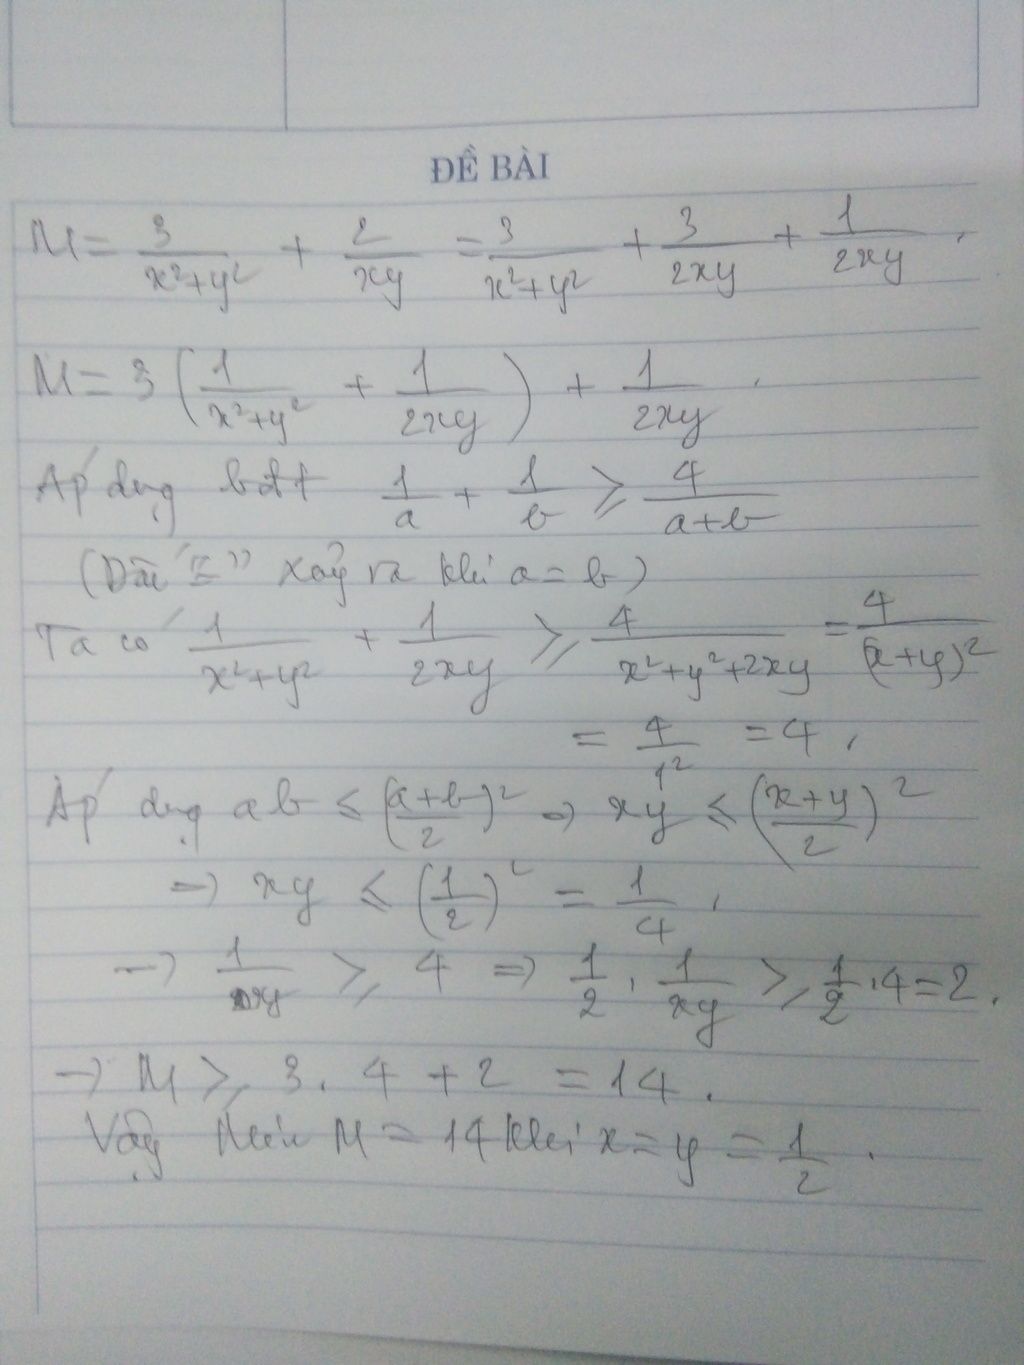 ĐỀ BÀI
M = 3/(x²+y²) + 2/(xy) = 3/(x²+y²) + 3/(2xy) + 1/(2xy).
M = 3(1/(x²+y²) + 1/(2xy)) + 1/(2xy).
Áp dụng bđt 1/a + 1/b ⩾ 4/(a+b)
(Dấu "=" xảy ra khi a = b)
Ta có 1/(x²+y²) + 1/(2xy) ⩾ 4/(x²+y²+2xy) = 4/(x+y)²
= 4/1² = 4,
Áp dụng ab ≤ ((a+b)/2)² ⇒ xy ≤ ((x+y)/2)²
⇒ xy ≤ (1/2)² = 1/4,
→ 1/(xy) ⩾ 4 ⇒ 1/2 . 1/(xy) ⩾ 1/2 . 4 = 2.
→ M ⩾ 3. 4 + 2 = 14.
Vậy Min M = 14 khi x = y = 1/2.